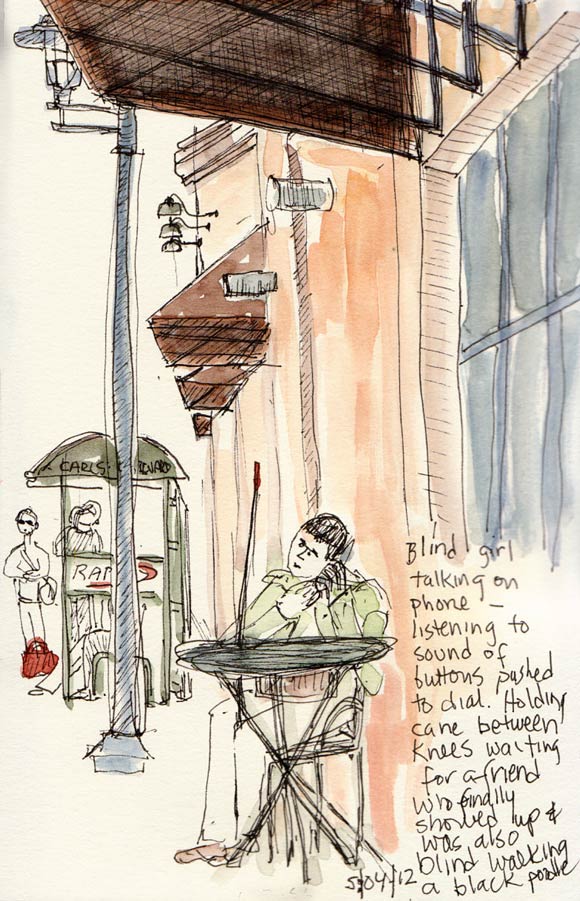 CARLS
RAP
Blind girl
talking on
phone –
listening to
sound of
buttons pushed
to dial. Holding
cane between
knees waiting
for a friend
who finally
showed up &
was also
blind walking
a black poodle
5/04/12